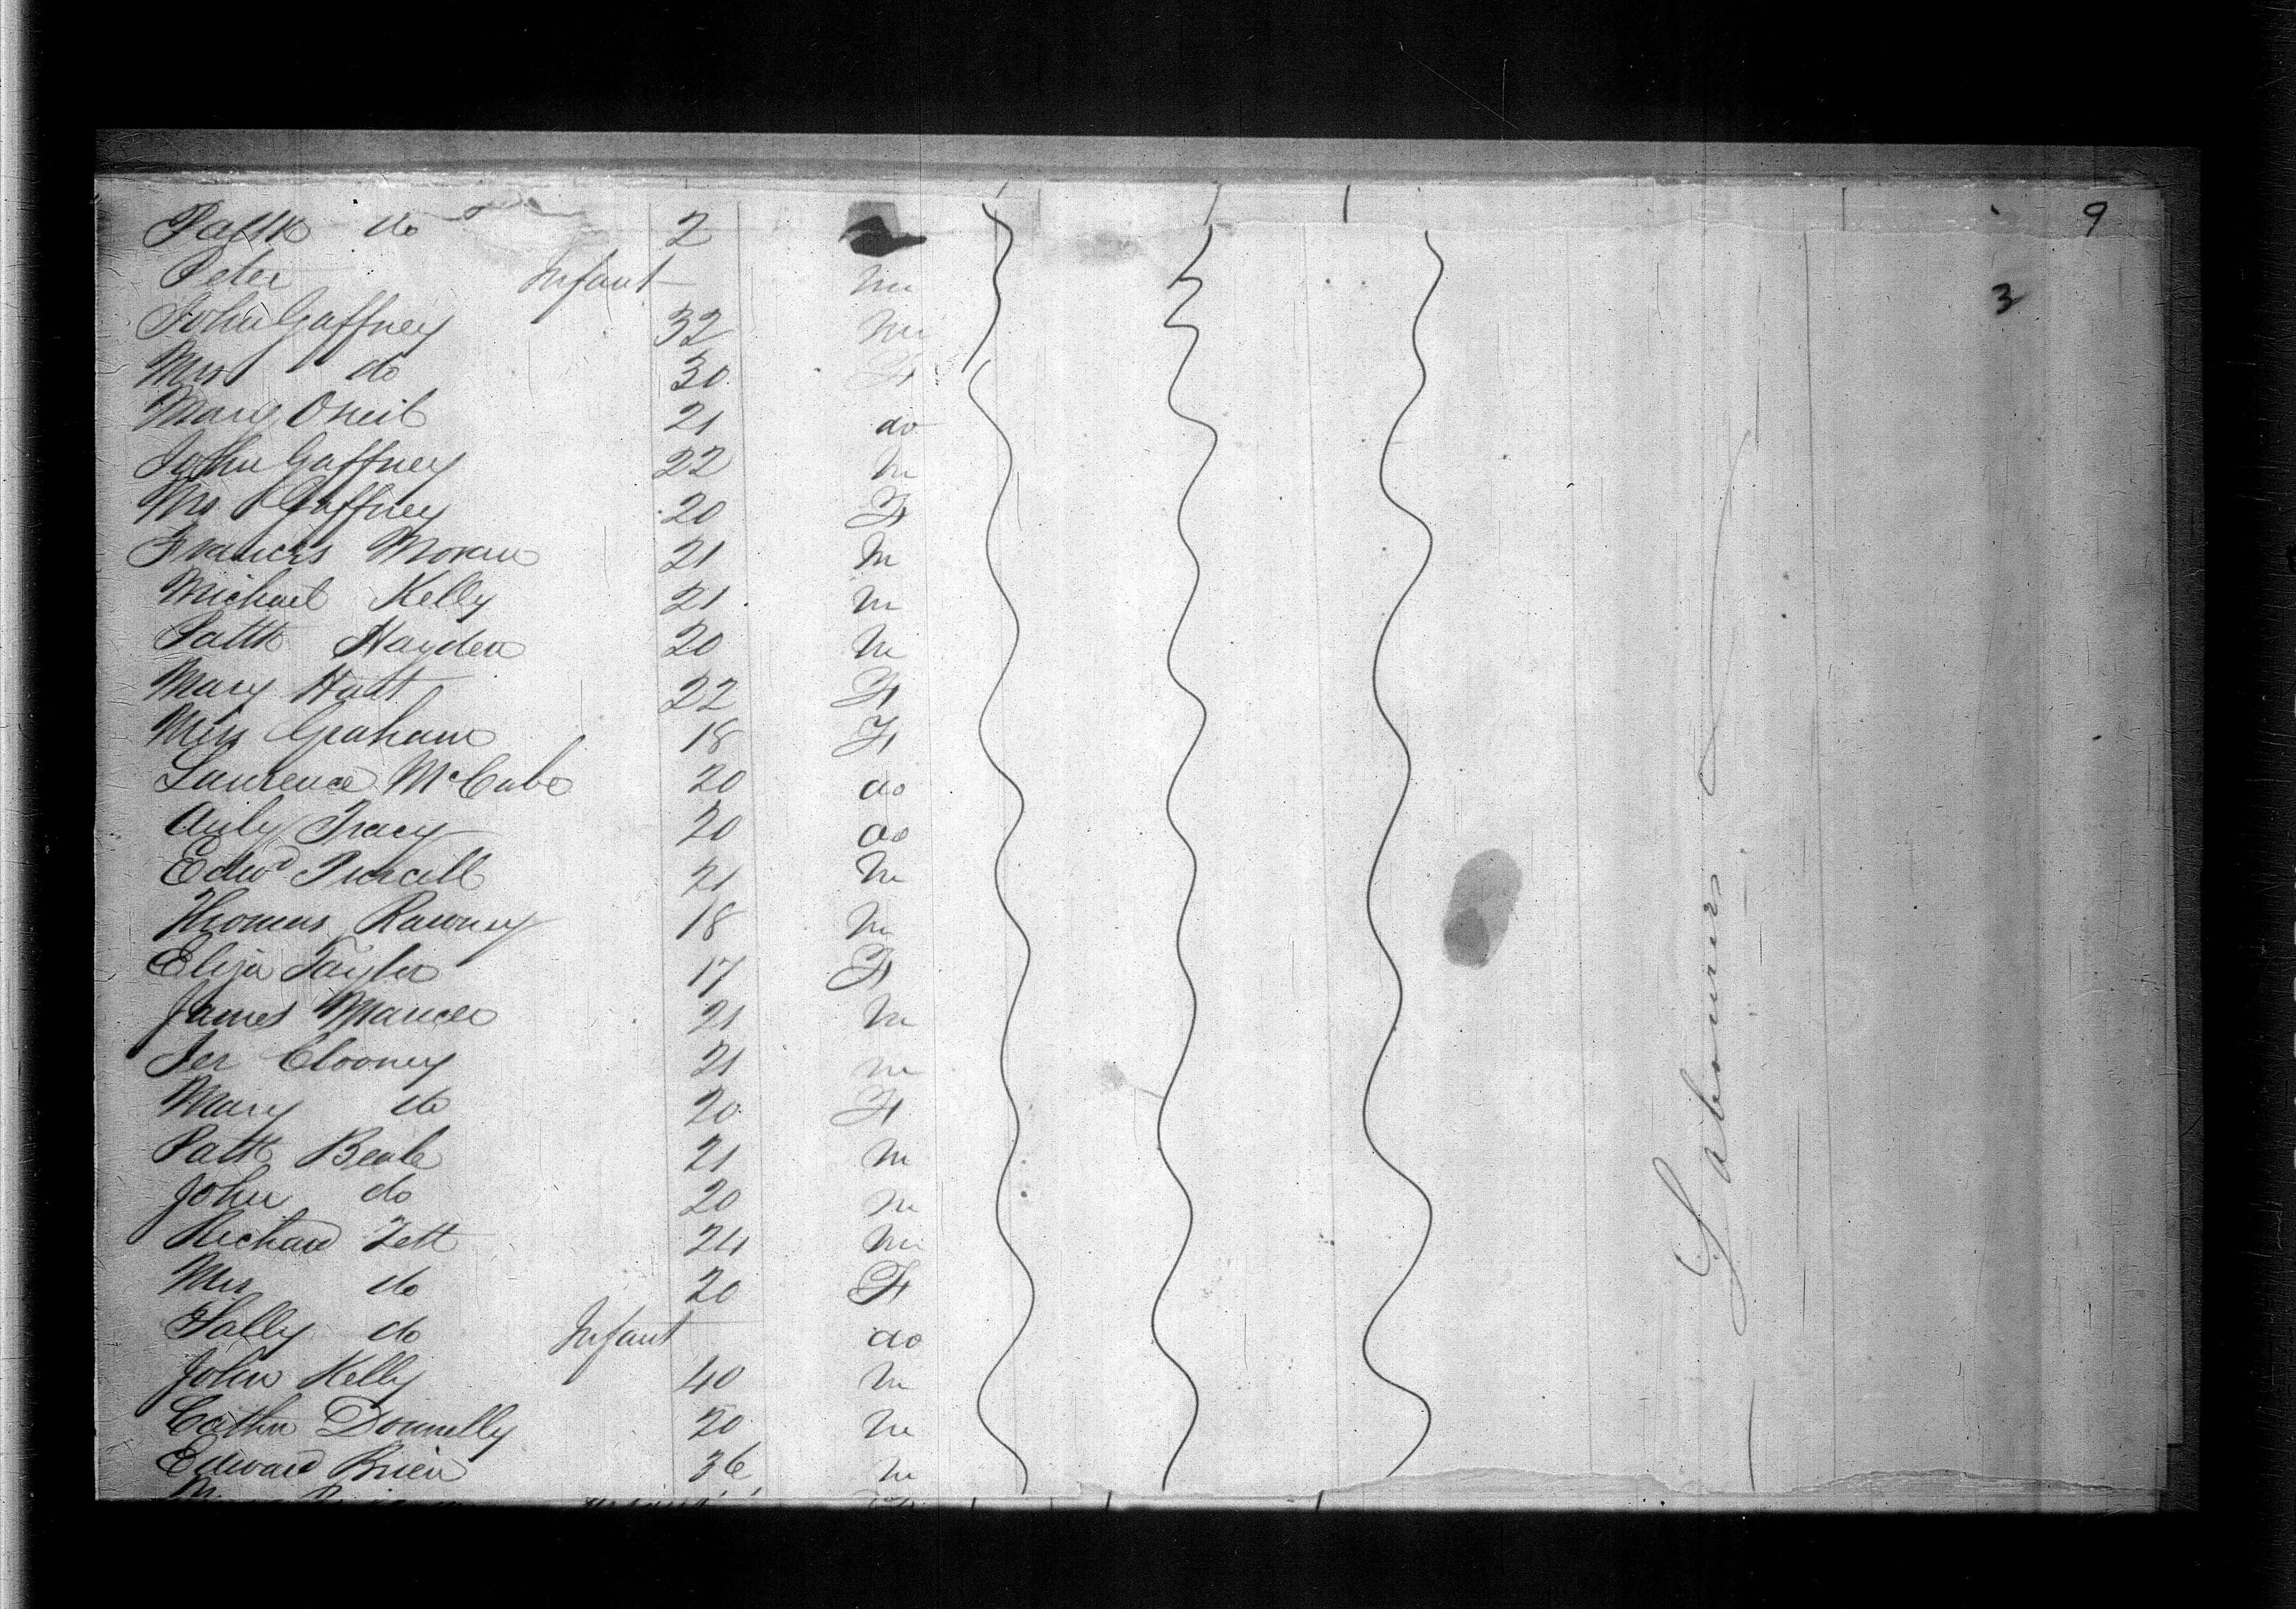 9
Patk do 2
Peter Infant m
3
John Gaffney 32 m
Mrs do 30 F
Mary Oneil 21 do
John Gaffney 22 m
Mrs Gaffney 20 F
Francis Moran 21 m
Michael Kelly 21 m
Patk Hayden 20 m
Mary Hatt 22 F
Miss Graham 18 F
Laurence McCabe 20 do
Tracy 20 do
Edwd Purcell 21 m
Thomas 18 m
Eliza Taylor 17 F
James 21 m
Jer Clooney 21 m
Mary do 20 F
Patk Beale 21 m
John do 20 m
Richard 24 m
Mrs do 20 F
do Infant do
John Kelly 40 m
Cathn Donnelly 20 m
Edward Brien 36 m
Labourers